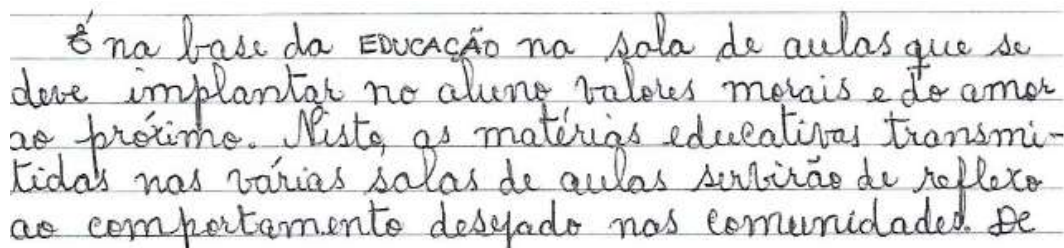 É na base da EDUCAÇÃO na sala de aulas que se
deve implantar no aluno valores morais e do amor
ao próximo. Nisto, as matérias educativas transmi-
tidas nas várias salas de aulas servirão de reflexo
ao comportamento desejado nas comunidades. De